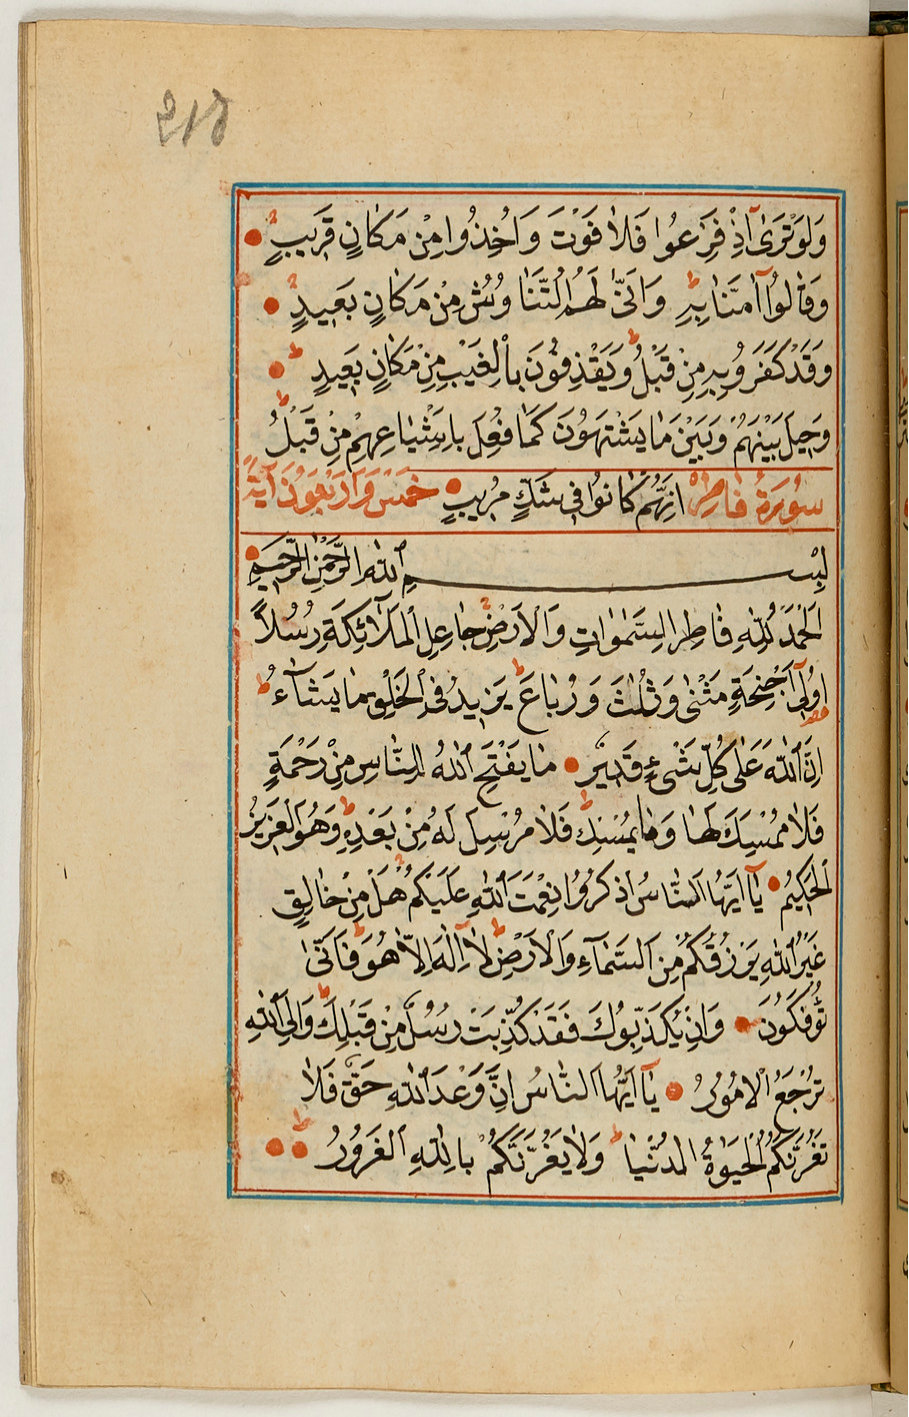 وَلَوْ تَرٰى اِذْ فَزِعُوا فَلَا فَوْتَ وَاُخِذُوا مِنْ مَكَانٍ قَرِيبٍ
وَقَالُوا اٰمَنَّا بِهِ وَاَنّٰى لَهُمُ التَّنَاوُشُ مِنْ مَكَانٍ بَعِيدٍ
وَقَدْ كَفَرُوا بِهِ مِنْ قَبْلُ وَيَقْذِفُونَ بِالْغَيْبِ مِنْ مَكَانٍ بَعِيدٍ
وَحِيلَ بَيْنَهُمْ وَبَيْنَ مَا يَشْتَهُونَ كَمَا فُعِلَ بِاَشْيَاعِهِمْ مِنْ قَبْلُ
سُورَةُ فَاطِرْ اِنَّهُمْ كَانُوا فِي شَكٍّ مُرِيبٍ خَمْسَ وَاَرْبَعُونَ اٰيَةً
بِسْــــــمِ اللّٰهِ الرَّحْمٰنِ الرَّحِيمِ
اَلْحَمْدُ لِلّٰهِ فَاطِرِ السَّمٰوَاتِ وَالْاَرْضِ جَاعِلِ الْمَلَآئِكَةِ رُسُلًا
اُولِٓى اَجْنِحَةٍ مَثْنٰى وَثُلٰثَ وَرُبَاعَ يَزِيدُ فِى الْخَلْقِ مَا يَشَآءُ
اِنَّ اللّٰهَ عَلٰى كُلِّ شَىْءٍ قَدِيرٌ مَا يَفْتَحِ اللّٰهُ لِلنَّاسِ مِنْ رَحْمَةٍ
فَلَا مُمْسِكَ لَهَا وَمَا يُمْسِكْ فَلَا مُرْسِلَ لَهُ مِنْ بَعْدِهِ وَهُوَ الْعَزِيزُ
الْحَكِيمُ يَآ اَيُّهَا النَّاسُ اذْكُرُوا نِعْمَتَ اللّٰهِ عَلَيْكُمْ هَلْ مِنْ خَالِقٍ
غَيْرُ اللّٰهِ يَرْزُقُكُمْ مِنَ السَّمَآءِ وَالْاَرْضِ لَآ اِلٰهَ اِلَّا هُوَ فَاَنّٰى
تُؤْفَكُونَ وَاِنْ يُكَذِّبُوكَ فَقَدْ كُذِّبَتْ رُسُلٌ مِنْ قَبْلِكَ وَاِلَى اللّٰهِ
تُرْجَعُ الْاُمُورُ يَآ اَيُّهَا النَّاسُ اِنَّ وَعْدَ اللّٰهِ حَقٌّ فَلَا
تَغُرَّنَّكُمُ الْحَيٰوةُ الدُّنْيَا وَلَا يَغُرَّنَّكُمْ بِاللّٰهِ الْغَرُورُ